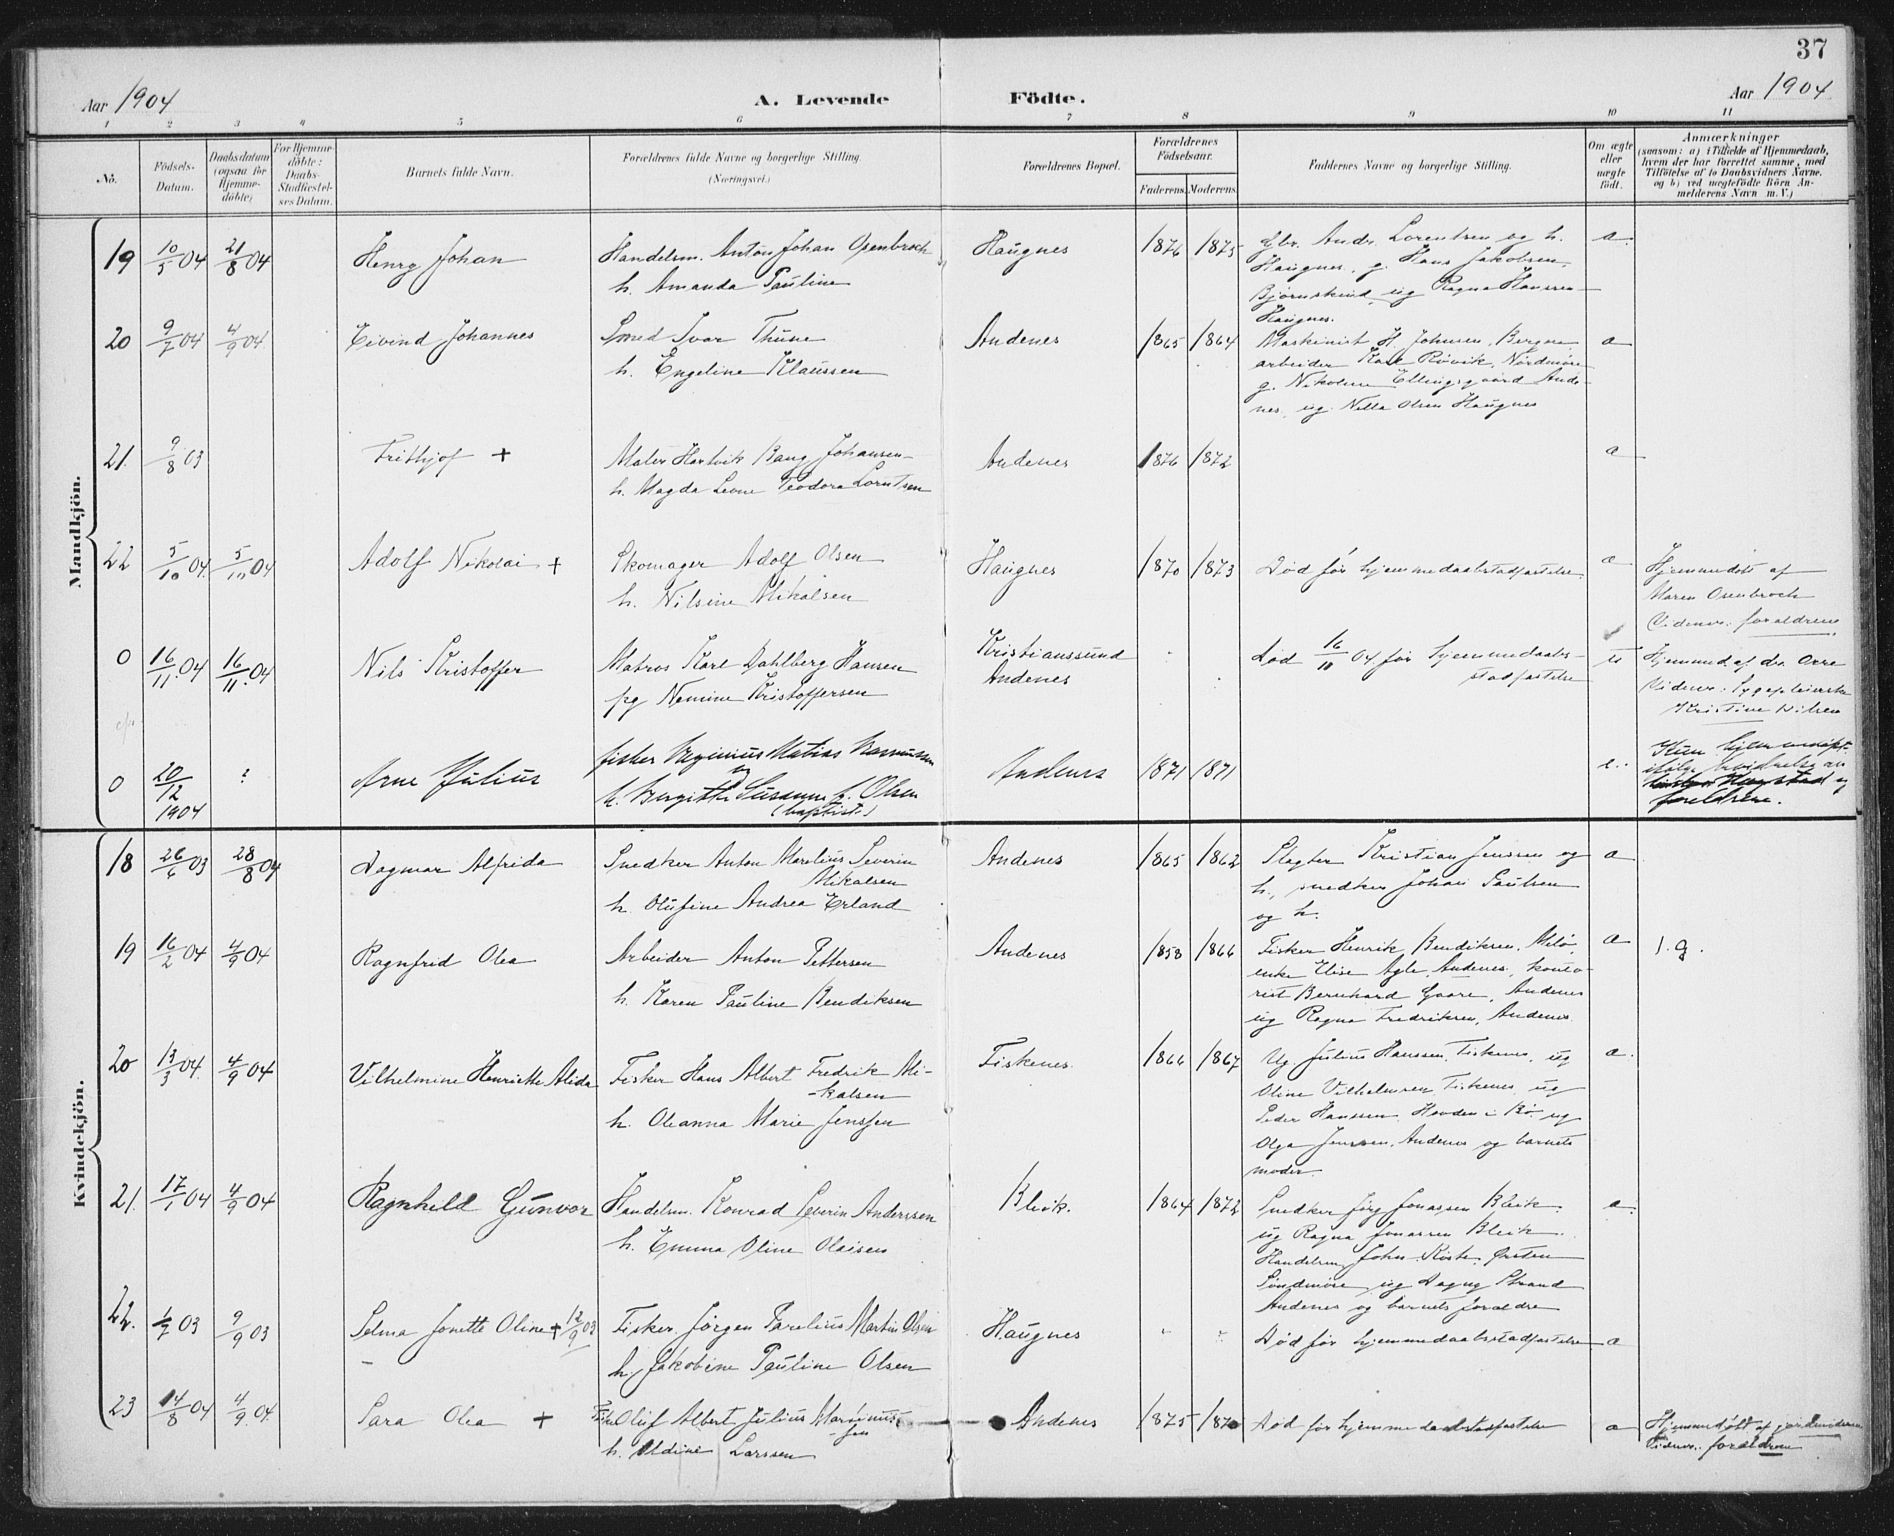 37
Aar 1904
A. Levende Födte.
Aar 1904
1 2 3 4 5 6 7 8 9 10 11
No.
Födsels-
Datum.
Daabsdatum
(ogsaa for
Hjemme-
döbte)
For Hjemme-
döbte:
Daabs-
Stadfæstel-
ses Datum.
Barnets fulde Navn.
Forældrenes fulde Navne og borgerlige Stilling.
(Næringsvei.)
Forældrenes Bopæl.
Forældrenes
Födselsaar.
Faderens. Moderens.
Faddernes Navne og borgerlige Stilling.
Om ægte
eller
uægte
födt.
Anmærkninger
(saasom: a) i Tilfælde af Hjemmedaab,
hvem der har forrettet samme, med
Tilföielse af to Daabsvidners Navne.
og b) ved uægtefödte Börn An-
melderens Navn m. V.)
Mandkjön.
19 10/5 04 21/8 04 Henry Johan
Handelsm. Anton Johan Osenbroch
h. Amanda Pauline
Haugnes 1876 1875
Gbr. Andr. Lorentsen og h.
Haugnes, g. Hans Jakobsen,
Bjørnskind, ug Ragna Hanssen
Haugnes.
a.
20 9/7 04 4/9 04 Eivind Johannes
Smed Ivar Thune
h. Engeline Klaussen
Andenes 1865 1864
Maskinist H Johnsen, Bergen,
arbeider Karl Røvik, Nordmøre
g. Nikoline Ellingsgaard Ande-
nes, ug. Nella Olsen Haugnes
a
21. 9/8 03 Frithjof +
Maler Hartvik Bang Johansen
h. Magda Leone Teodora Lorntsen
Andenes 1876 1872
a
22 5/10 04. 5/10 04 Adolf Nikolai +
Skomager Adolf Olsen
h. Nilsine Mikalsen
Haugnes 1870 1873 Død før hjemmedaabstadfæstelse a
Hjemmedøbt af
Maren Osenbroch
Vidner: forældrene
0 16/11 04 16/11 04 Nils Kristoffer
Matros Karl Dahlberg Hansen
pg Nemine Kristoffersen
Kristianssund
Andenes
død 16/11 04 før hjemmedaabs-
stadfæstelse
Hjemmed. af dr. Orre
Vidner: Sygepleierske
Kristine Nilsen
0 20/12 1904 ? Arne Julius
fisker Virginius Matias Rasmussen
og
h. Bergitte Susanne f. Olsen
(baptist)
Andenes 1871 1871
Kun hjemmedøpt
foreldrene.
Kvindekjön.
18 26/6 03 28/8 04 Dagmar Alfrida
Snedker Anton Marelius Severin
Mikalsen
h. Olufine Andrea Erland
Andenes 1865 1862
Slagter Kristian Jenssen og
h, snedker Johan Paulsen
og h.
a
19 16/2 04 4/9 04 Ragnfrid Olea
Arbeider Anton Pettersen
h. Karen Pauline Bendiksen
Andenes 1858 1866
Fisker Henrik Bendiksen, Melø,
enke Elise Agle, Andenes, konto-
rist Bernhard Gaare, Andenes
ug Ragna Fredriksen, Andenes.
a 1. g.
20 13/3 04. 4/9 04 Vilhelmine Henriette Alida
Fisker Hans Albert Fredrik Mi-
kalsen
h. Oleanna Marie Jenssen
Fiskenes. 1866 1867
Ug. Julius Hanssen, Fiskenes, ug
Oline Vilhelmsen Fiskenes, ug
Peder Hanssen, Hovden i Bø. ug
Olga Jenssen, Andenes og barnets
moder.
a.
21. 17/1 04 4/9 04 Ragnhild Gunvor
Handelsm. Konrad Severin Anderssen
h. Emma Oline Olaisen
Bleik. 1864 1872
Snedker Jørg Jonassen Bleik.
ug Ragna Jonassen Bleik.
Handelsm John Riste, Ørsten
Søndmøre ug Dagny Strand
Andenes og barnets forældre
a.
22. 4/7 03 9/9 03 Selma Jonette Oline + 12/9 03
Fisker Jørgen Parelius Martin Olsen
h. Jakobine Pauline Olsen
Haugnes Død før hjemmedaabstadfæstelse a
23 14/8 04 4/9 04. Sara Olea +
Fisker Oluf Albert Julius Marinus-
sen
h. Aldine Larssen
Andenes 1875 1870 Død før hjemmedaabstadfæstelse a
Hjemmedøbt af jordmoderen
Vidner: forældrene